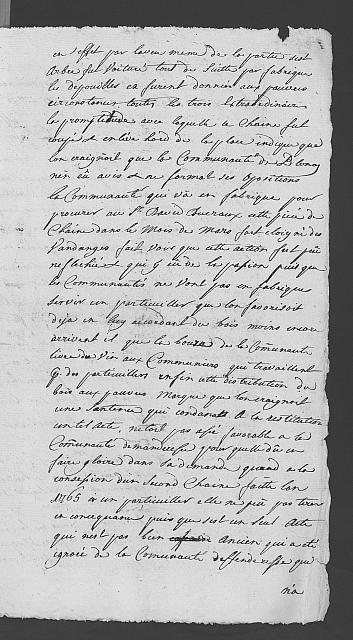 en effet par laveu meme de la partie cest
Arbre fut Voituré tout de Suitte par fabrique
les depouilles en furent données aux pauvres
circonstances toutes les trois Extraordinaires
la promptitude avec laquelle le Chaine fut
coupé et enlevé hord de la place indique que
lon craignoit que la Communauté de Blonay
nen eû avis et ne format ses opositions
la Communauté qui va en fabrique pour
procurer au Sr. David cette piéce de
Chaine dans le Mois de Mars fort eloigné des
Vandanges fait voir que cette action fut peu
reflechie et qui y eu de la passion puis que
les Communautés ne Vont pas en fabrique
servir un particuillier que lon favorisoit
deja en luy accordant du bois moins encore
arrivent il que la bourse de la Comunauté
livre du Vin aux Communiers qui travaillent
pr. des particuillers enfin cette distribution du
bois aux pauvres marque que lon craignoit
une Santence qui condanat a la restitution
un tel Acte, netoit pas assé favorable a la
Comunauté demanderesse pour quelle dû en
faire gloire dans sa demande quand a la
consession dun Second Chaine faitte lan
1765 à un particuillier elle ne peu pas tirer
en consequance puis que cest un seul Acte
qui nest pas bien Ancien qui a eté
ignoré de la Comunauté deffenderesse que
n'a